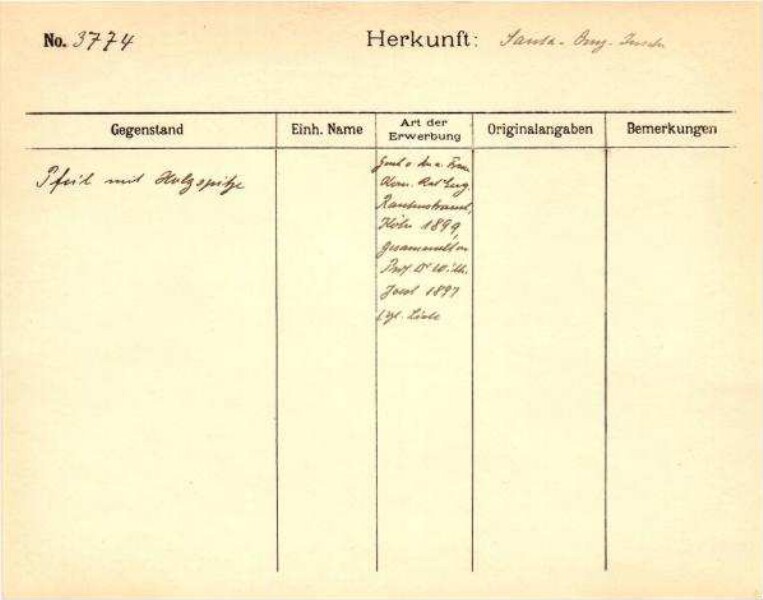 No. 3774
Herkunft: Santa-Cruz-Inseln
Gegenstand
Einh. Name
Art der Erwerbung
Originalangaben
Bemerkungen
Pfeil mit Holzspitze
Gesch. v. Frau
Kom. Rat Eug.
Rautenstrauch,
Köln 1899,
gesammelt v.
Prof. Dr Wilh.
Joest 1897
vgl. Liste